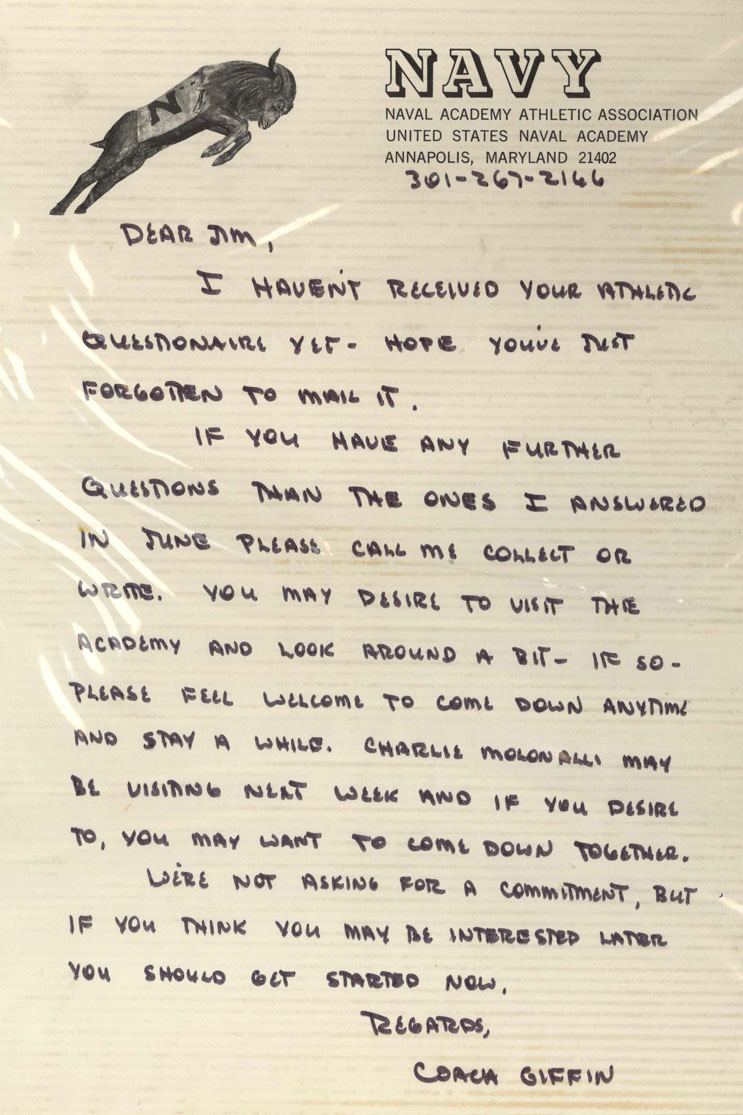 N
NAVY
NAVAL ACADEMY ATHLETIC ASSOCIATION
UNITED STATES NAVAL ACADEMY
ANNAPOLIS, MARYLAND 21402
301-267-2166
DEAR JIM,
I HAVEN'T RECEIVED YOUR ATHLETIC
QUESTIONAIRE YET- HOPE YOU'VE JUST
FORGOTTEN TO MAIL IT.
IF YOU HAVE ANY FURTHER
QUESTIONS THAN THE ONES I ANSWERED
IN JUNE PLEASE CALL ME COLLECT OR
WRITE. YOU MAY DESIRE TO VISIT THE
ACADEMY AND LOOK AROUND A BIT- IF SO-
PLEASE FEEL WELCOME TO COME DOWN ANYTIME
AND STAY A WHILE. CHARLIE MOLONALLI MAY
BE VISITING NEXT WEEK AND IF YOU DESIRE
TO, YOU MAY WANT TO COME DOWN TOGETHER.
WE'RE NOT ASKING FOR A COMMITMENT, BUT
IF YOU THINK YOU MAY BE INTERESTED LATER
YOU SHOULD GET STARTED NOW.
REGARDS,
COACH GIFFIN